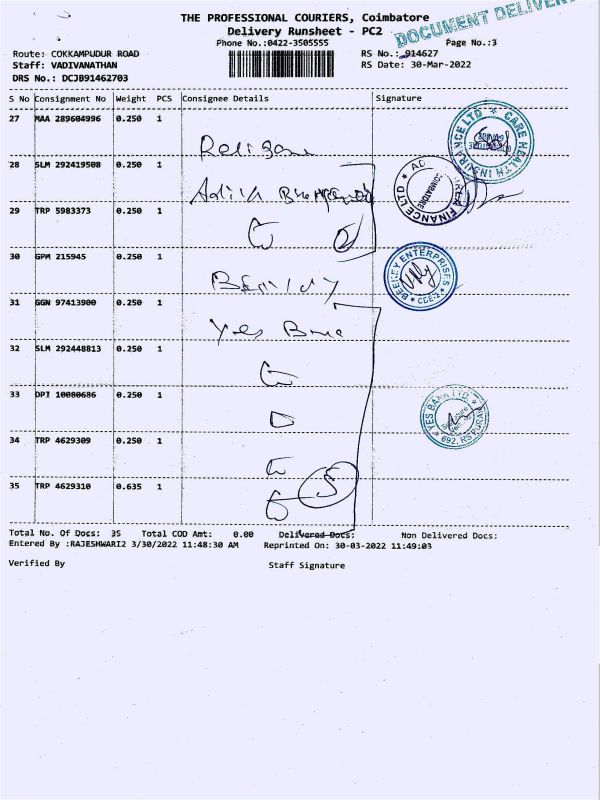 THE PROFESSIONAL COURIERS, Coimbatore
DOCUMENT DELIVER
Delivery Runsheet - PC2
Phone No.:0422-3505555
Page No.:3
Route: COKKAMPUDUR ROAD
RS No.: 914627
Staff: VADIVANATHAN
RS Date: 30-Mar-2022
DRS No.: DCJB91462703
S No Consignment No Weight PCS Consignee Details Signature
27 MAA 289604996 0.250 1
CARE HEALTH INSURANCE LTD
28 SLM 292419508 0.250 1
FINANCE LTD
COIMBATORE
29 TRP 5983373 0.250 1
2
30 GPM 215945 0.250 1
BEEKEY ENTERPRISES
CBE-2
31 GGN 97413900 0.250 1
Yes
32 SLM 292448813 0.250 1
33 DPI 10080686 0.250 1
YES BANK LTD.
692, RS PURAM
34 TRP 4629309 0.250 1
5
35 TRP 4629310 0.635 1
Total No. Of Docs: 35 Total COD Amt: 0.00 Delivered Docs: Non Delivered Docs:
Entered By :RAJESHWARI2 3/30/2022 11:48:30 AM Reprinted On: 30-03-2022 11:49:03
Verified By Staff Signature